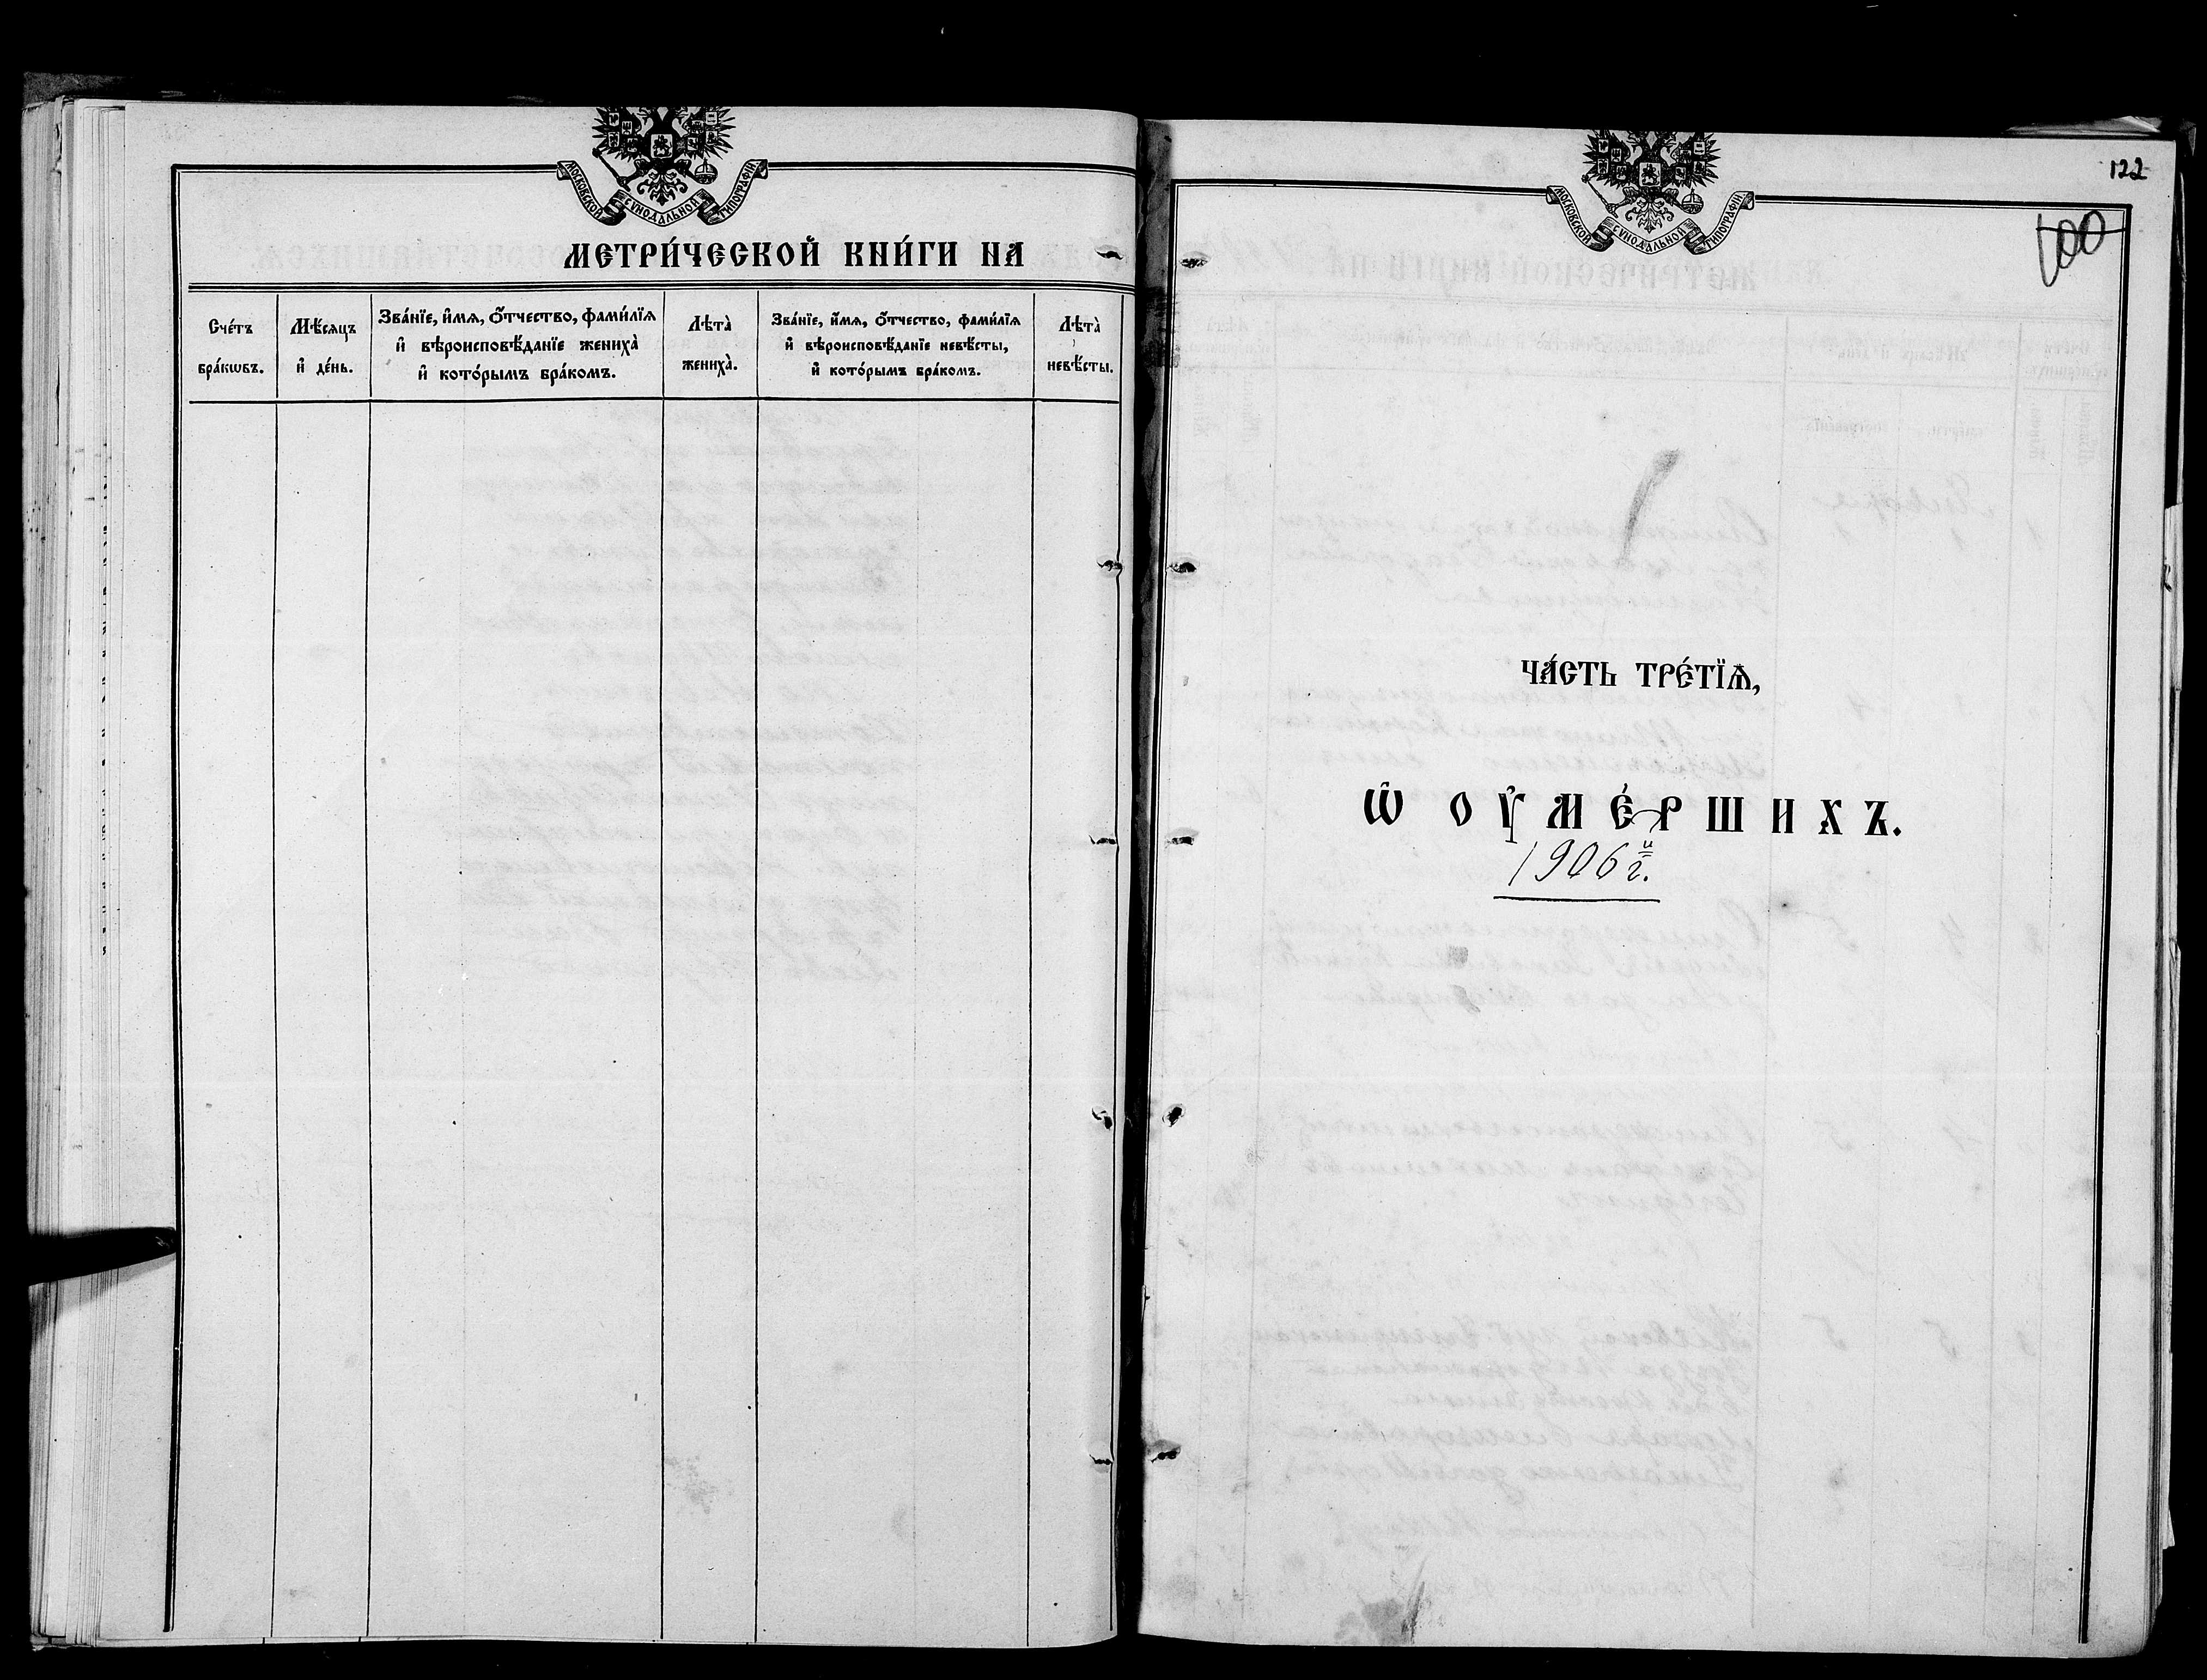 МОСКОВСКОЙ СѴНОДАЛЬНОЙ ТИПОГРАФІИ
МЕТРИ́ЧЕСКОЙ КНИ́ГИ НА
Сче́тъ
бра́кѡвъ.
Мѣ́сяцъ
и҆ де́нь.
Зва́нїе, и҆́мѧ, ѻ҆́тчество, фами́лїѧ
и҆ вѣроисповѣ́данїе жениха̀
и҆ кото́рымъ бра́комъ.
Лѣта̀
жениха̀.
Зва́нїе, и҆́мѧ, ѻ҆́тчество, фами́лїѧ
и҆ вѣроисповѣ́данїе невѣ́сты,
и҆ кото́рымъ бра́комъ.
Лѣта̀
невѣ́сты.
122
МОСКОВСКОЙ СѴНОДАЛЬНОЙ ТИПОГРАФІИ
100
ЧА́СТЬ ТРЕ́ТЇѦ,
Ѽ ОУ҆МЕ́РШИХЪ.
1906 й г.